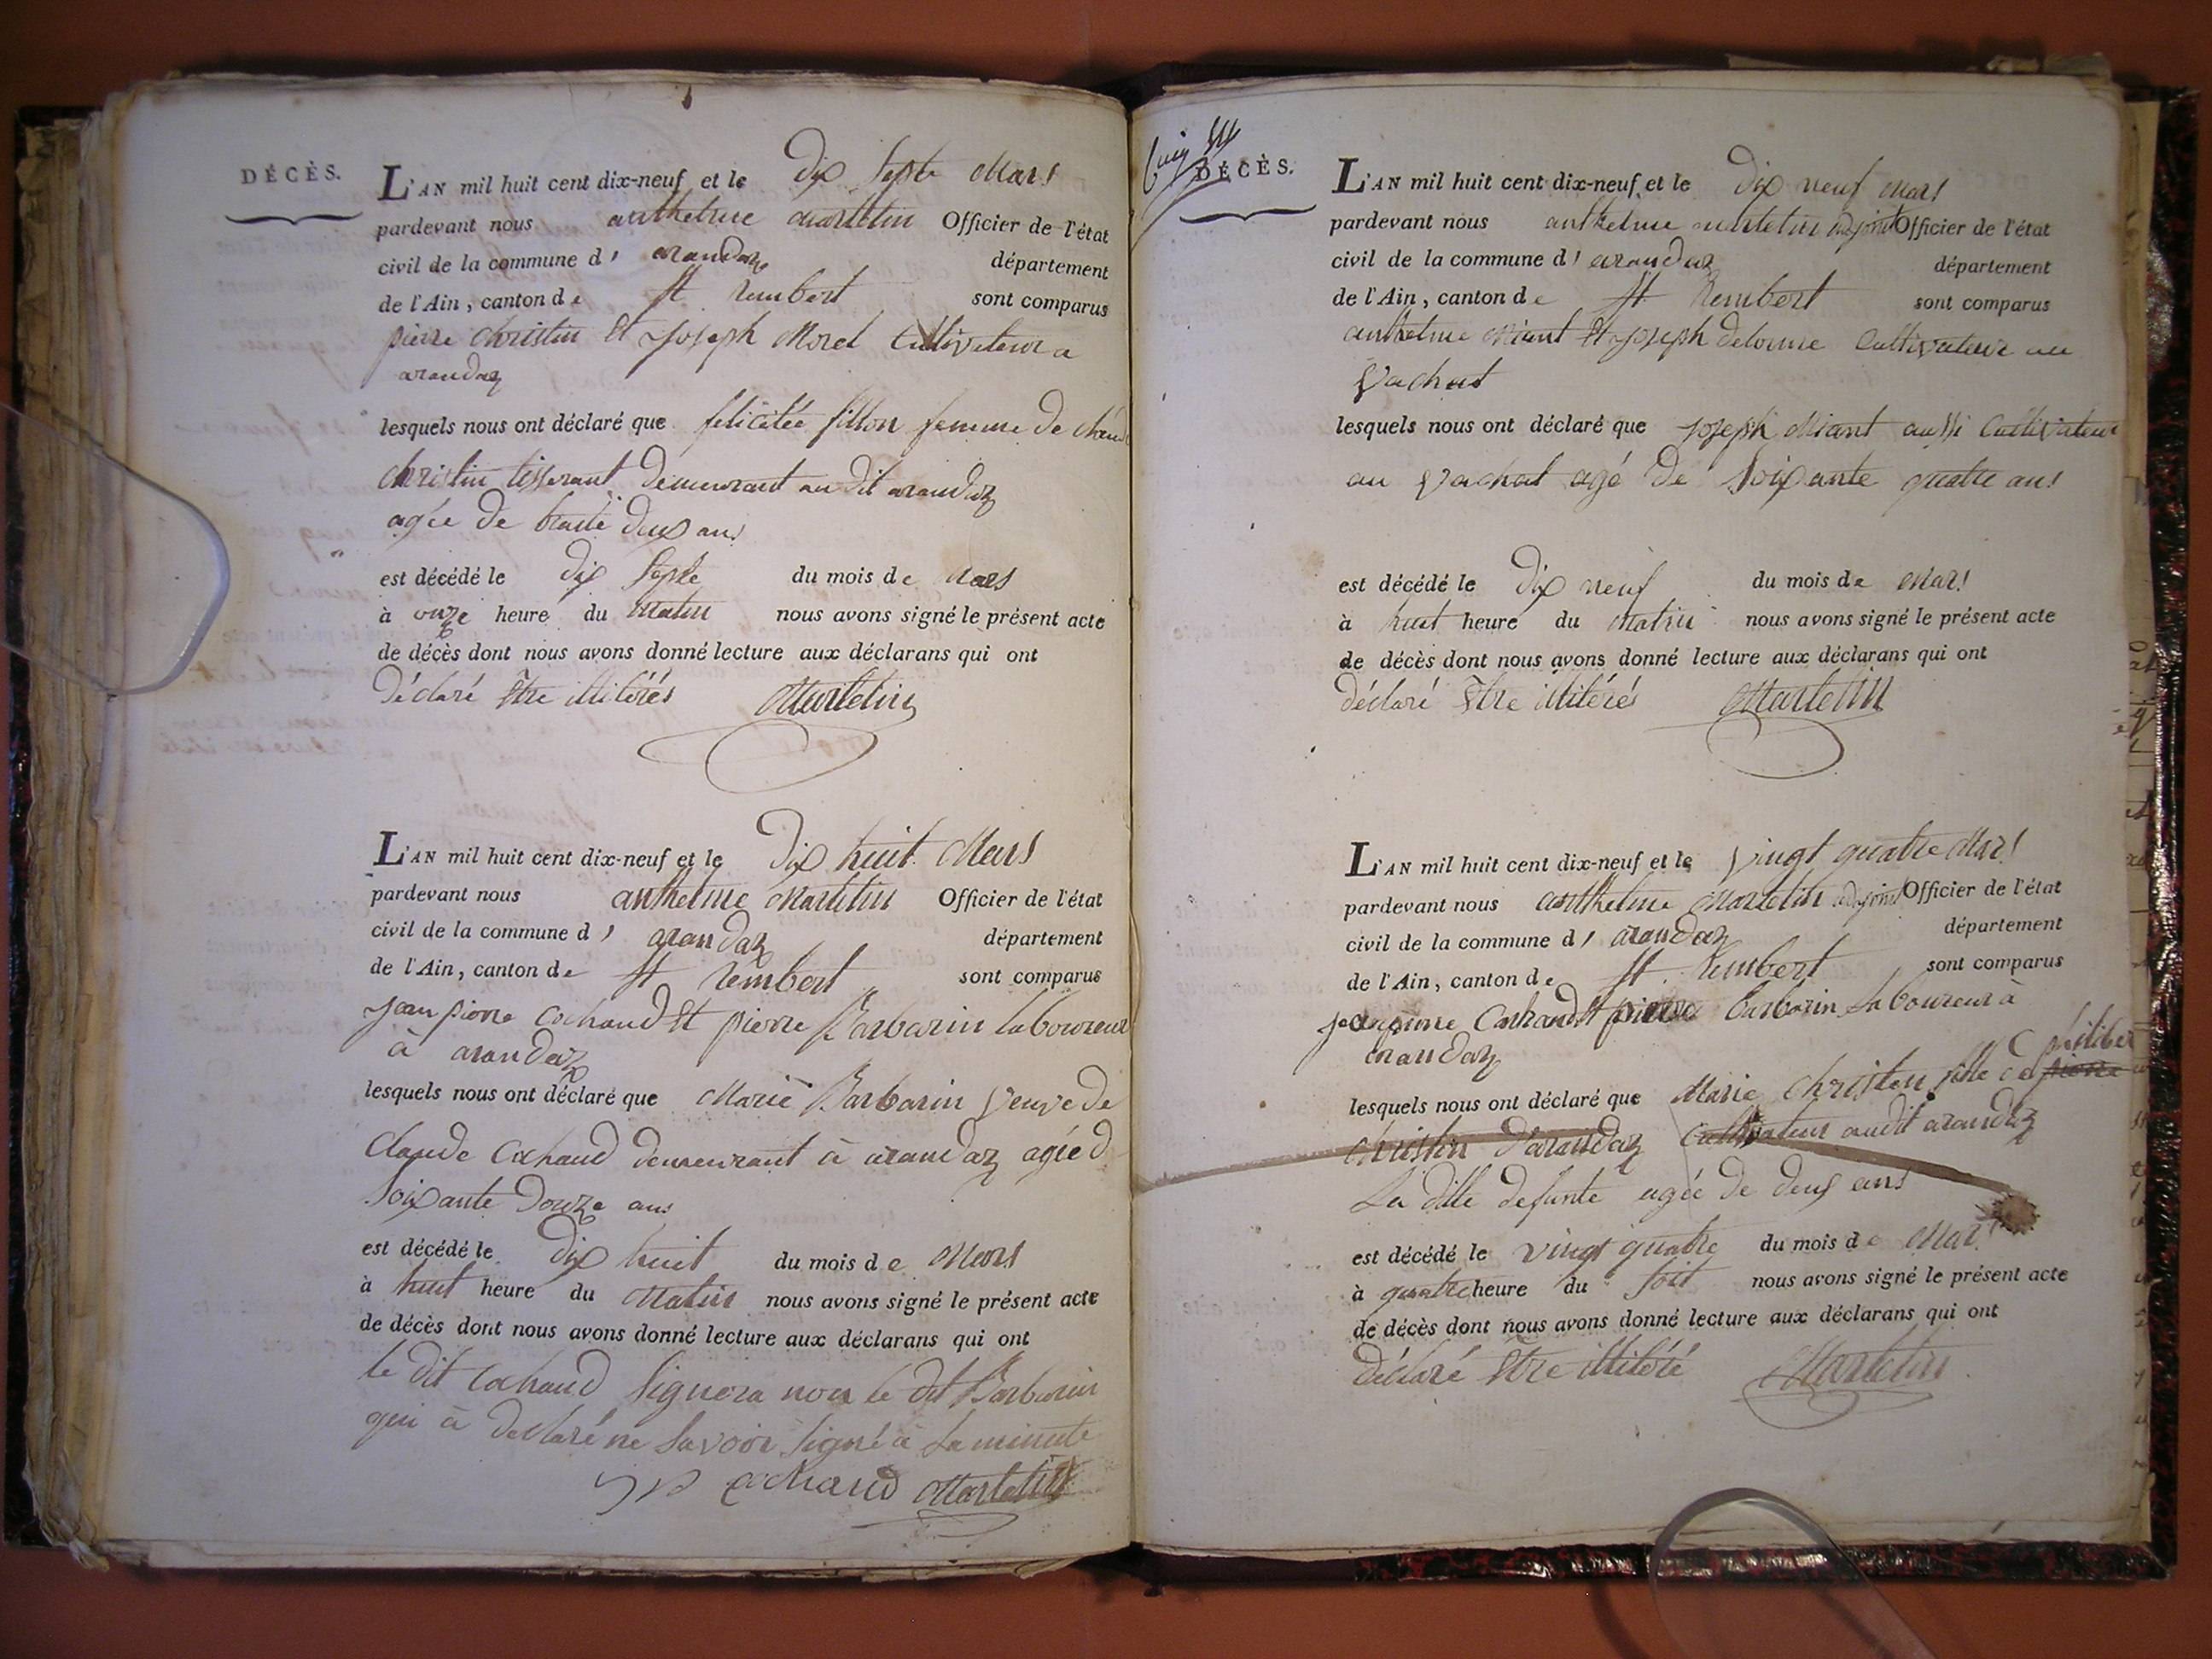 DÉCÈS.
L'AN mil huit cent dix-neuf et le dix sept mars
pardevant nous anthelme martelin Officier de l'état
civil de la commune d' arandaz département
de l'Ain, canton de St rembert sont comparus
pierre christin et joseph Morel Cultivateur a
arandaz
lesquels nous ont déclaré que félicitée fillon femme de
christin tisserant demeurant au dit arandaz
agée de trante deux ans
est décédé le dix septe du mois de mars
à onze heure du matin nous avons signé le présent acte
de décès dont nous avons donné lecture aux déclarans qui ont
déclaré être illitérés Martelin
L'AN mil huit cent dix-neuf et le dix huit Mars
pardevant nous anthelme Martelin Officier de l'état
civil de la commune d' arandaz département
de l'Ain, canton de St rembert sont comparus
jean pierre cochaud et pierre Barbarin laboureur
à arandaz
lesquels nous ont déclaré que Marie Barbarin veuve de
claude Cochaud demeurant à arandaz agée d
soixante douze ans
est décédé le dix huit du mois de Mars
à huit heure du Matin nous avons signé le présent acte
de décès dont nous avons donné lecture aux déclarans qui ont
le dit cochaud signera non le dit Barbarin
qui à déclaré ne savoir signé à la minute
cochaud Martelin
DÉCÈS.
L'AN mil huit cent dix-neuf et le dix neuf mars
pardevant nous anthelme martelin adjoint Officier de l'état
civil de la commune d' arandaz département
de l'Ain, canton de St Rembert sont comparus
anthelme Miant et joseph delorme Cultivateur au
vachat
lesquels nous ont déclaré que joseph Miant aussi Cultivateur
au vachat agé de soixante quatre ans
est décédé le dix neuf du mois de mars
à huit heure du matin nous avons signé le présent acte
de décès dont nous avons donné lecture aux déclarans qui ont
déclaré être illitérés Martelin
L'AN mil huit cent dix-neuf et le vingt quatre Mars
pardevant nous anthelme Martelin adjoint Officier de l'état
civil de la commune d' arandaz département
de l'Ain, canton de St Rembert sont comparus
jean pierre Cochaud et pierre barbarin laboureur à
arandaz
philiber
lesquels nous ont déclaré que Marie christin fille de pierre
christin d'arandaz Cultivateur audit arandaz
La dille defunte agée de deux ans
est décédé le vingt quatre du mois de Mars
à quatre heure du soir nous avons signé le présent acte
de décès dont nous avons donné lecture aux déclarans qui ont
déclaré être illitéré Martelin